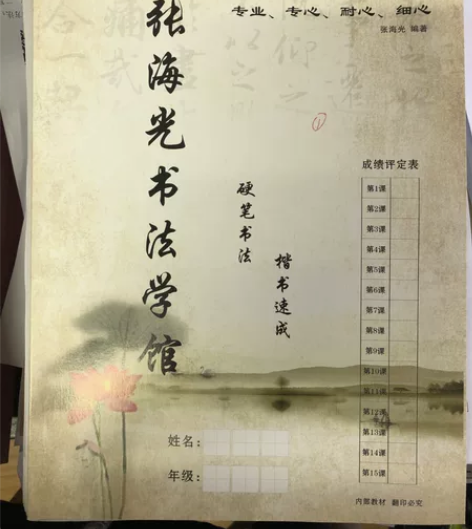 专业、专心、耐心、细心
张海光 编著
张海光书法学馆
①
硬笔书法
楷书速成
成绩评定表
第1课
第2课
第3课
第4课
第5课
第6课
第7课
第8课
第9课
第10课
第11课
第12课
第13课
第14课
第15课
姓名：
年级：
内部教材 翻印必究